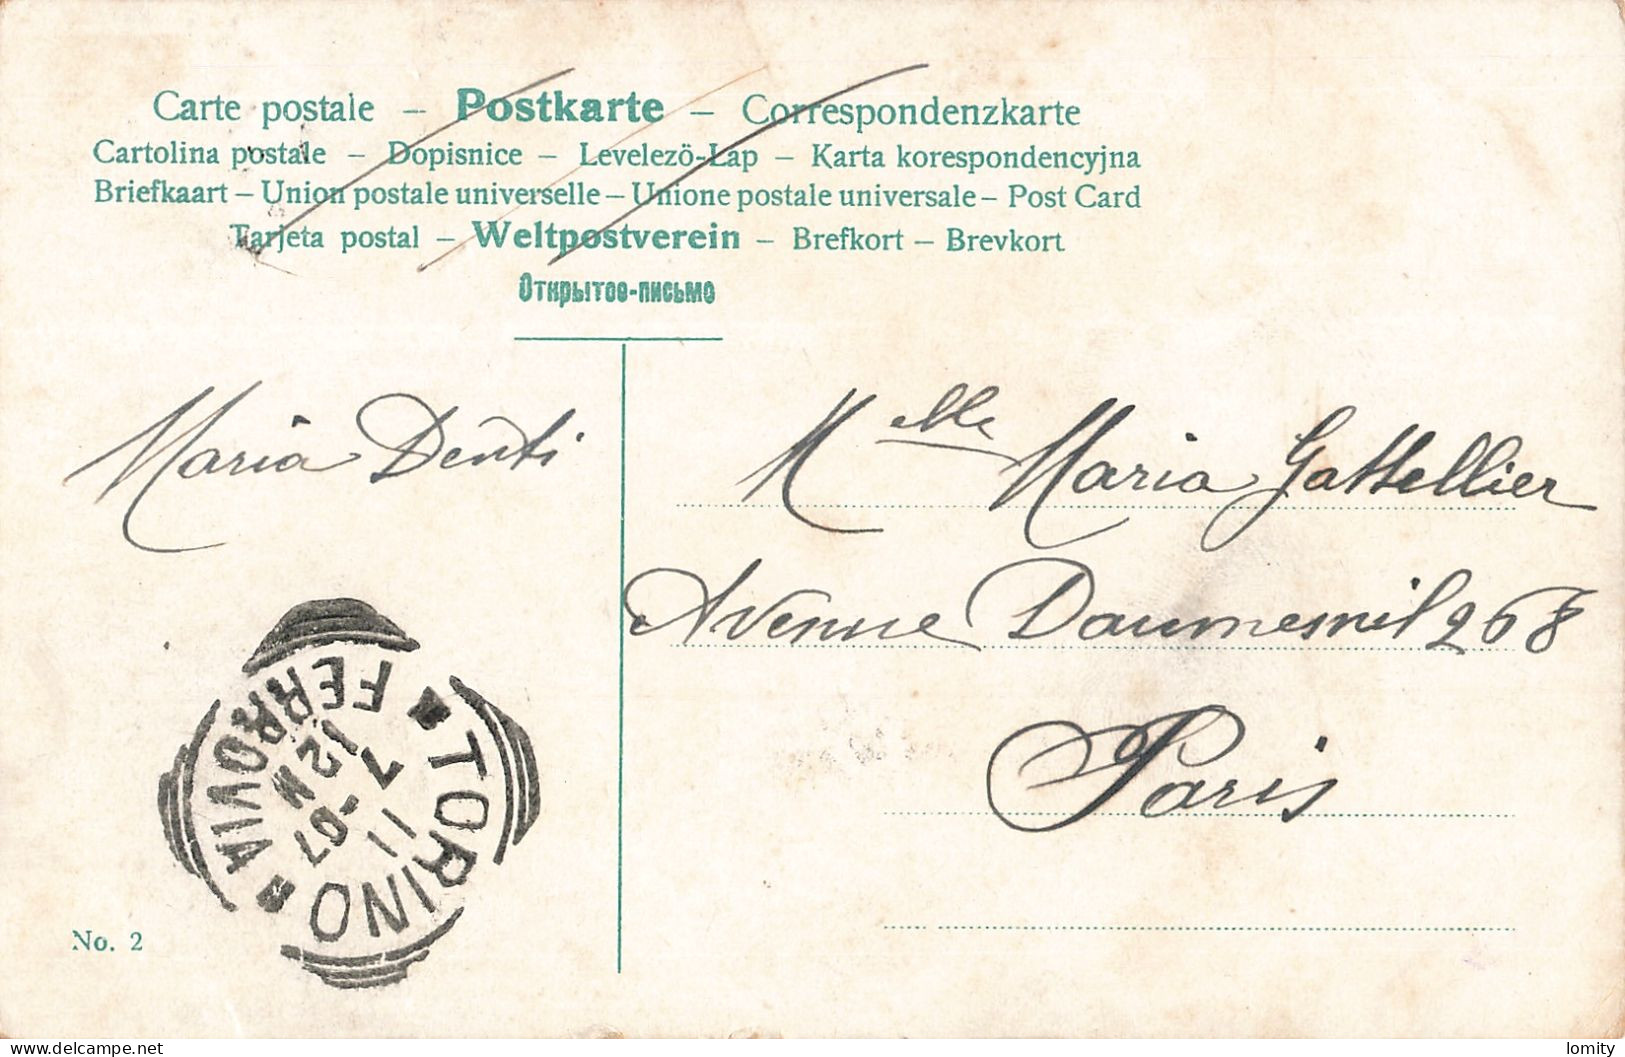 Carte postale – Postkarte – Correspondenzkarte
Cartolina postale – Dopisnice – Levelezö-Lap – Karta korespondencyjna
Briefkaart – Union postale universelle – Unione postale universale – Post Card
Tarjeta postal – Weltpostverein – Brefkort – Brevkort
Открытое-письмо
Maria Denti
Melle Maria Gattellier
Avenue Daumesnil 268
Paris
TORINO
FERROVIA
7 11 -07
12 M
No. 2
delcampe.net
lomity